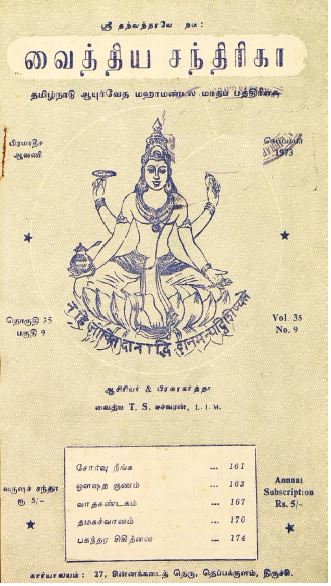 ஸ்ரீ தந்வந்தரயே நம:
வைத்திய சந்திரிகா
தமிழ்நாடு ஆயுர்வேத மஹாமண்டல மாதப் பத்திரிகை
பிரமாதீச
ஆவணி
செப்டம்பர்
1973
தொகுதி 35
பகுதி 9
Vol. 35
No. 9
ஆசிரியர் & பிரசுரகர்த்தா
வைதிய T. S. ஈச்வரன், L. I. M.
வருஷச் சந்தா
ரூ 5/-
சோர்வு நீங்க ... 161
ஔஷத குணம் ... 163
வாதகண்டகம் ... 167
தமகச்வாஸம் ... 170
பகந்தர சிகித்ஸை ... 174
Annual
Subscription
Rs. 5/-
காரியாலயம் : 27, சின்னக்கடைத் தெரு, தெப்பக்குளம், திருச்சி.